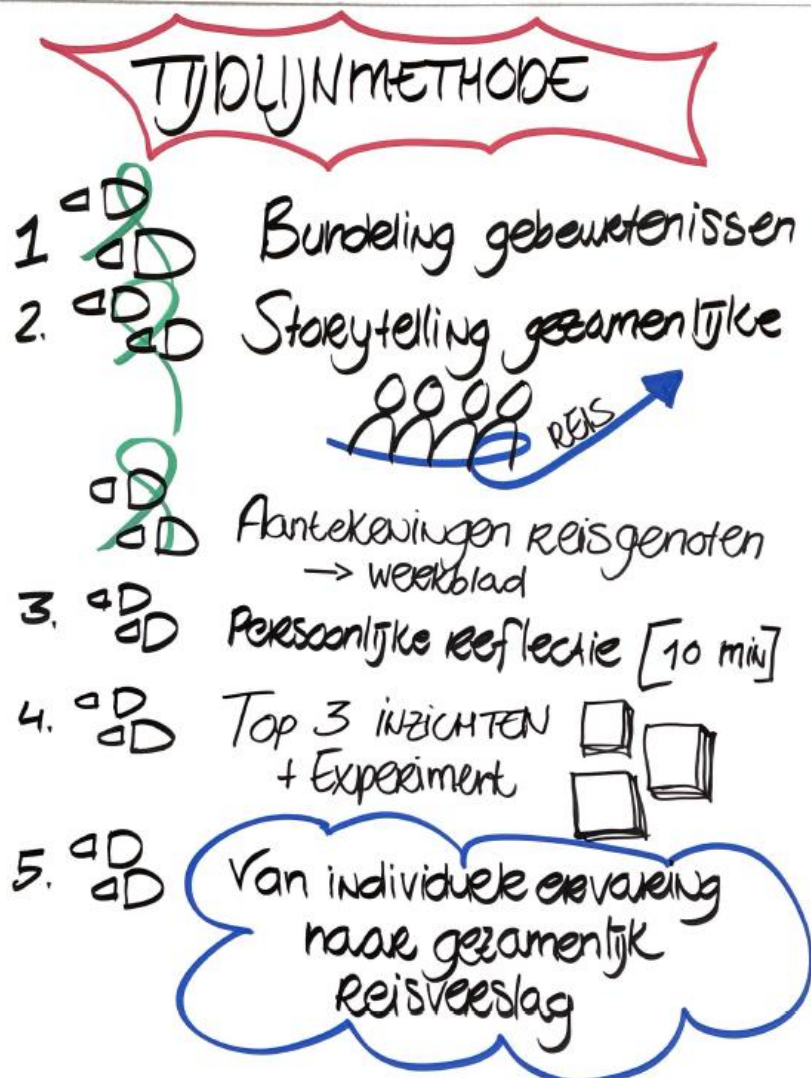 TIJDLIJNMETHODE
1 Bundeling gebeurtenissen
2. Storytelling gezamenlijke
REIS
Aantekeningen Reisgenoten
→ weekblad
3. Persoonlijke Reflectie [10 min]
4. Top 3 INZICHTEN
+ Experiment
5. Van individuele ervaring
naar gezamenlijk
Reisverslag